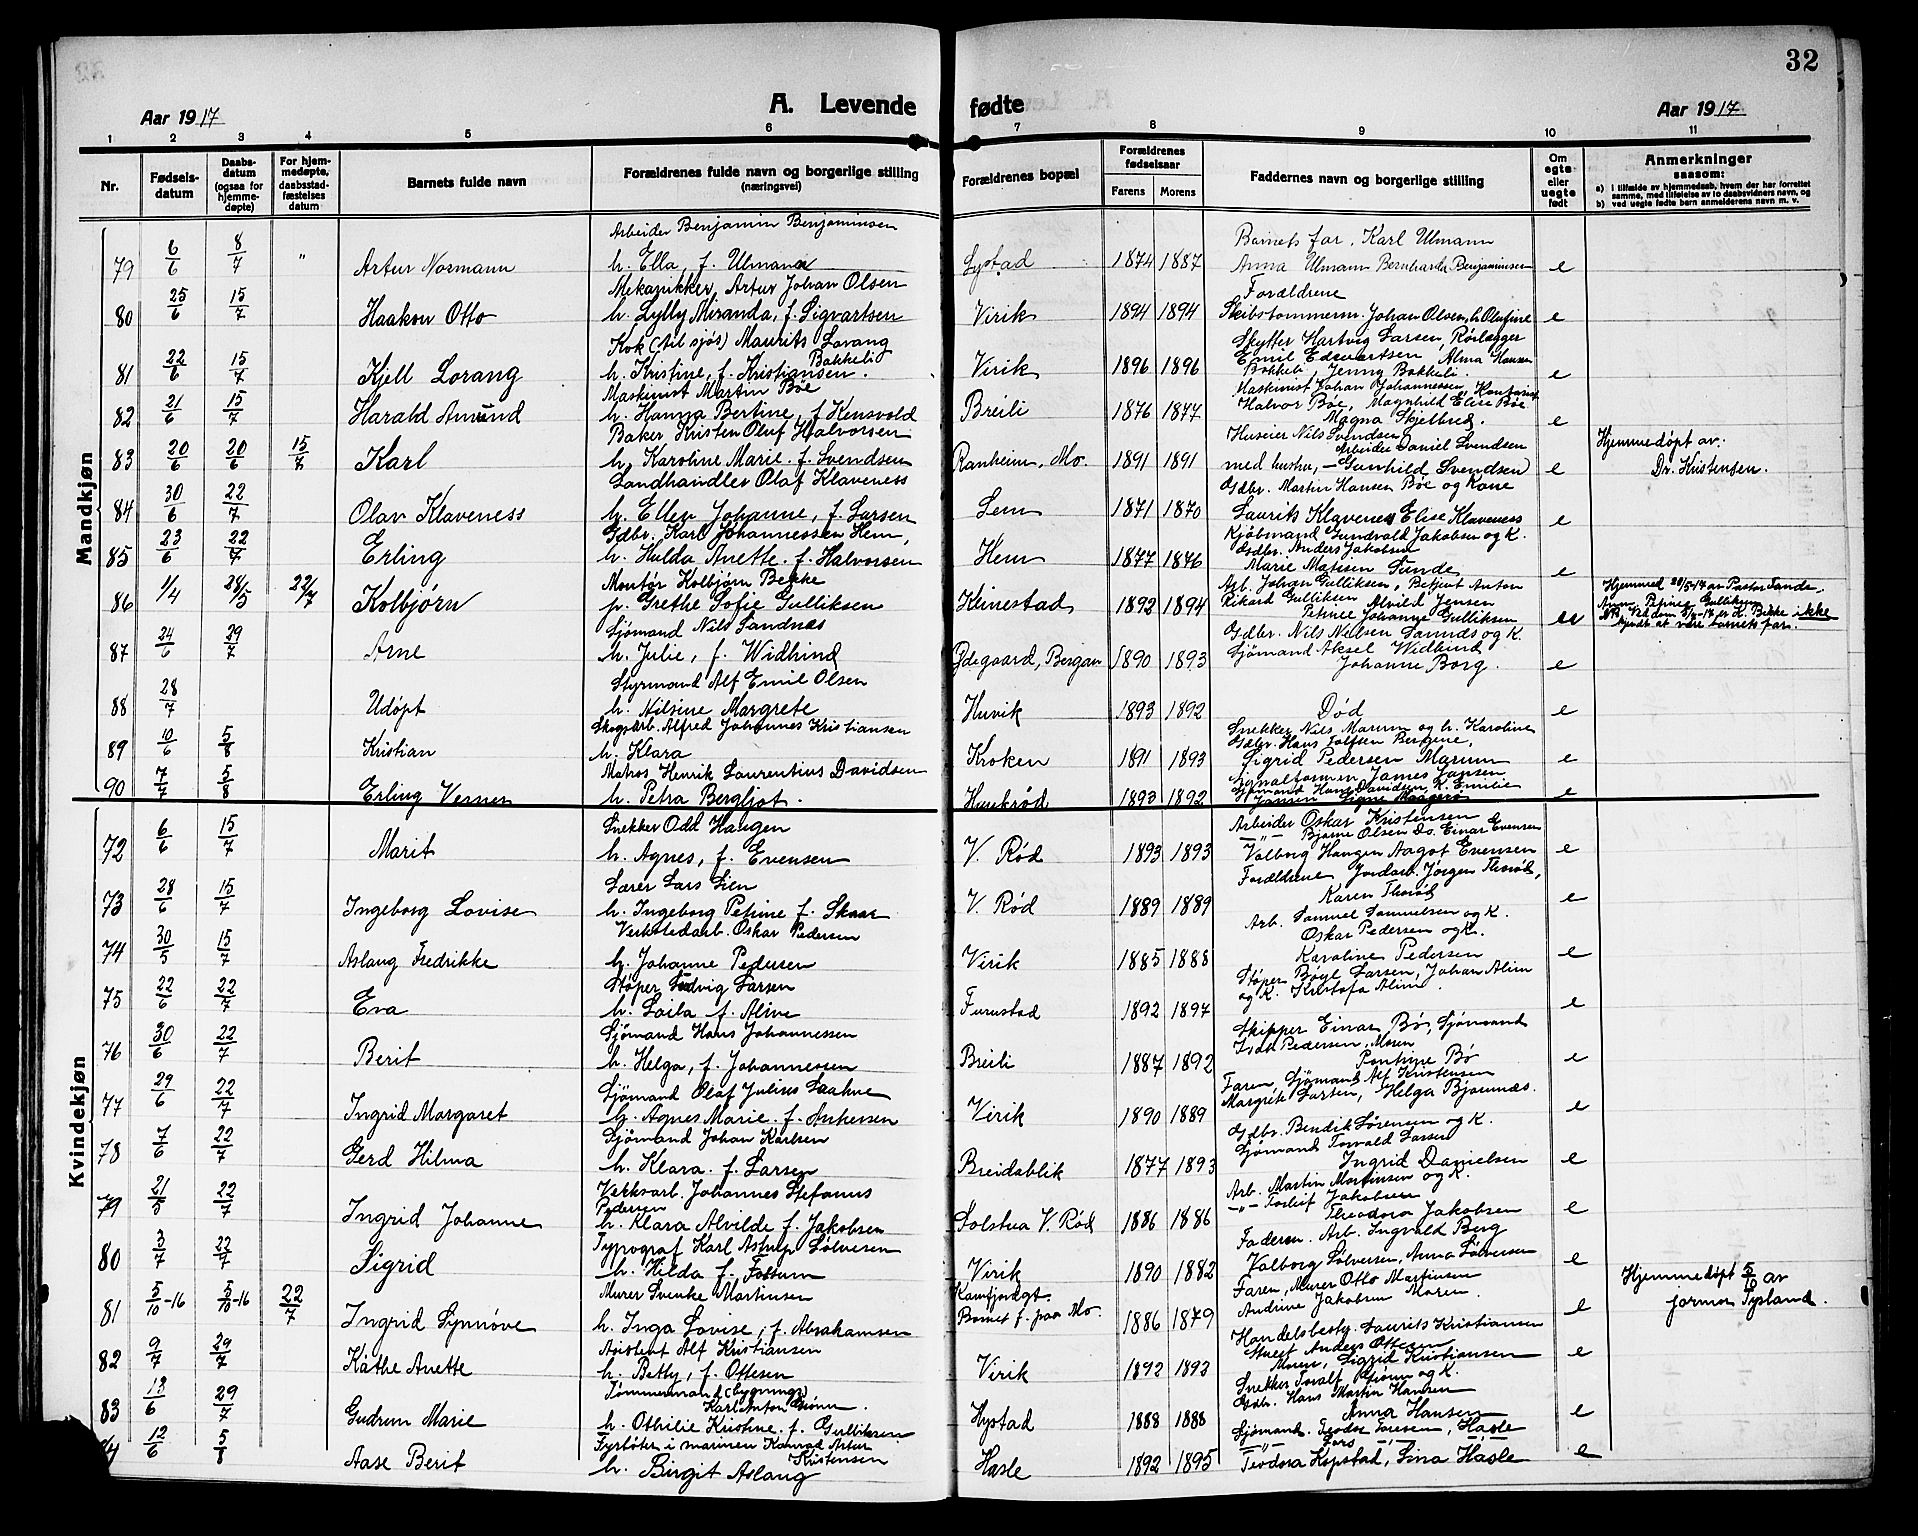 32
Aar 1917
A. Levende fødte
Aar 1917
1 2 3 4 5 6 7 8 9 10 11
Nr.
Fødsels-datum
Daabs-datum (ogsaa for hjemme-døpte)
For hjem-medøpte, daabsstad-fæstelses datum
Barnets fulde navn
Forældrenes fulde navn og borgerlige stilling (næringsvei)
Forældrenes bopæl
Forældrenes fødselsaar
Farens Morens
Faddernes navn og borgerlige stilling
Om egte eller uegte født
Anmerkninger saasom:
a) i tilfælde av hjemmedaab, hvem der har forrettet samme, med tilføielse av to daabsvidners navn, og
b) ved uegte fødte børn anmelderens navn m. v.
Mandkjøn
Arbeider Benjamin Benjaminsen Barnets far, Karl Ulmann
79 6/6 8/7 " Artur Normann h. Ella, f. Ulmann Lystad 1874 1887 Anna Ulmann Bernharda Benjaminsen e
Mekanikker Artur Johan Olsen Forældrene
80 25/6 15/7 Haakon Otto h. Lylly Miranda, f. Sigvartsen Virik 1894 1894 Skibstømmerm. Johan Olsen, h. Olufine e
Kok (til sjøs) Maurits Lorang Bakkeli Skytter Hartvig Larsen, Rørlægger Emil Edvartsen Alma Hansen
81 22/6 15/7 Kjell Lorang h. Kristine, f. Kristiansen. Virik 1896 1896 Bakkeli, Jenny Bakkeli. e
Maskinist Martin Bøe Maskinist Johan Johannessen, Kontorist
82 21/6 15/7 Harald Amund h. Hanna Bertine, f. Kensvold Breili 1876 1877 Halvor Bøe, Magnhild Elise Bøe Magna Skjelbred. e
Baker Kristen Oluf Halvorsen Huseier Nils Svendsen Arbeider Daniel Svendsen
83 20/6 20/6 15/7 Karl h. Karoline Marie f. Svendsen Ranheim, Mo. 1891 1891 med hustru, Gunhild Svendsen e Hjemmedøpt av: Dr. Kristensen.
Landhandler Olaf Klaveness Gdbr. Martin Hansen Bøe og Kone
84 30/6 22/7 Olav Klaveness h. Ellen Johanne, f. Larsen Lem 1871 1870 Laurits Klaveness Elise Klaveness e
Gdbr. Karl Johannessen Hem, Kjøbmand Gundvald Jakobsen og K. Gdbr. Anders Jakobsen
85 23/6 22/7 Erling h. Hulda Anette f. Halvorsen Hem 1877 1876 Marie Matisen Sunde e
Montør Kolbjørn Bekke Arb. Johan Gulliksen, Betjent Anton
86 1/4 28/5 22/7 Kolbjørn p. Grethe Sofie Gulliksen Klinestad 1892 1894 Rikard Gulliksen Alvild Jensen Petrine Johanne Gulliksen ue Hjemmed 28/5-17 av Pastor Sande, Anm. Petrine Gulliksen ikke kjendt at være barnets far.
Sjømand Nils Sandnæs Gdbr. Nils Nilsen Sannds og K.
87 24/6 29/7 Arne h. Julie, f. Widhind Ødegaard, Bergan 1890 1893 Sjømand Aksel Widhind Johanne Borg. e
Styrmand Alf Emil Olsen
88 28/7 Udøpt h. Nilsine Margrete Huvik 1893 1892 Død e
Skogsarb. Alfred Johannes Kristiansen Snekker Nils Marum og h. Karoline Gdbr. Hans Tolfsen Bergene,
89 10/6 5/8 Kristian h. Klara Kroken 1891 1893 Sigrid Pedersen Marum e
Matros Henrik Laurentius Davidsen Signalformen James Jansen
90 7/7 5/8 Erling Verner h. Petra Bergljot. Haukrød 1893 1892 Sjømand Hans Davidsen K. Emilie Jansen Signe Maagerø e
Kvindekjøn
Snekker Odd Haugen Arbeider Oskar Kristensen -"- Bjarne Olsen Do. Einar Evensen
72 6/6 15/7 Marit h. Agnes, f. Evensen V. Rød 1893 1893 Valborg Haugen Aagot Evensen e
Lærer Lars Lien Forældrene Jordarb. Jørgen Thorød,
73 28/6 15/7 Ingeborg Lovise h. Ingeborg Petrine f. Skaar V. Rød 1889 1889 Karen Thorød e
Verkstedarb. Oskar Pedersen Arb. Samuel Samuelsen og K. Oskar Pedersen og K.
74 30/5 15/7 Aslaug Fredrikke h. Johanne Pedersen Virik 1885 1888 Karoline Pedersen e
Støper Ludvig Larsen Støper Bøyl Larsen, Johan Alim
75 22/6 22/7 Eva h. Loila f. Alive Furustad 1892 1897 og K. Kristofa Alim. e
Sjømand Hans Johannessen Skipper Einar Bø, Sjømand
76 30/6 22/7 Berit h. Helga, f. Johannessen Breili 1887 1892 Pedersen, Moren Pontine Bø e
Sjømand Olaf Julius Laahne Faren, Sjømand Alf Kristensen
77 29/6 22/7 Ingrid Margaret h. Agnes Marie f. Ankersen Virik 1890 1889 Margrete Larsen, Helga Bjønnæs. e
Sjømand Johan Karlsen Gdbr. Bendik Sørensen og K. Sjømand Torvald Larsen
78 7/6 22/7 Gerd Hilma h. Klara f. Larsen Breidablik 1877 1893 Ingrid Danielsen e
Verksarb. Johannes Stefanus Pedersen Arb. Martin Mortinsen og K. -"- Torleif Jakobsen
79 21/5 22/7 Ingrid Johanne h. Klara Alvilde f. Jakobsen Solstua V. Rød 1886 1886 Theodora Jakobsen e
Typograf Karl Astrup Sølvesen Faderen. Arb. Ingvald Berg
80 3/7 22/7 Sigrid h. Hilda f. Fossum Virik 1890 1882 Valborg Sølvesen, Anna Sølvesen e
Murer Svenke Martinsen Kamfjordgt. Faren, Murer Otto Martinsen
81 5/10-16 5/10-16 22/7 Ingrid Synnøve h. Inga Lovise, f. Abrahamsen Barnet f. paa Mo. 1886 1879 Andrine Jakobsen Moren. e Hjemmedøpt 5/10 av jormor Tysland.
Assistent Alf Kristiansen Handelsbesty. Laurits Kristiansen Anders Ottesen
82 9/7 29/7 Käthe Anette h. Betty, f. Ottesen Virik 1892 1893 Moren, Sigrid Kristiansen e
Tømmermand (bygnings) Karl Anton Grønn. Snekker Toralf Grønn og K. Gdbr. Hans Martin Hansen
83 13/6 29/7 Gudrun Marie h. Othilie Kristine f. Gulliksen Hystad 1888 1888 Anna Hansen e
Fyrbøter i marinen Konrad Artur Kristensen Sjømand. Teodor Toresen, Hasle -"- Lars -"-
84 12/6 5/8 Aase Berit h. Birgit Aslaug Hasle 1892 1895 Teodora Kopstad, Lina Hasle e